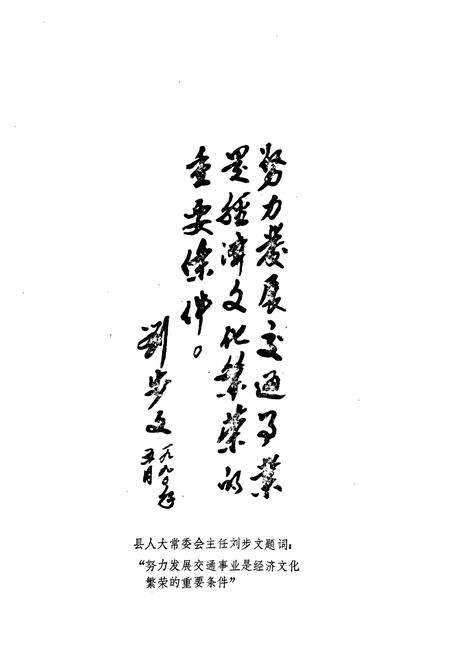 努力發展交通事業
是經濟文化繁榮的
重要條件。
劉步文
一九九〇年
五月
县人大常委会主任刘步文题词：
“努力发展交通事业是经济文化
繁荣的重要条件”